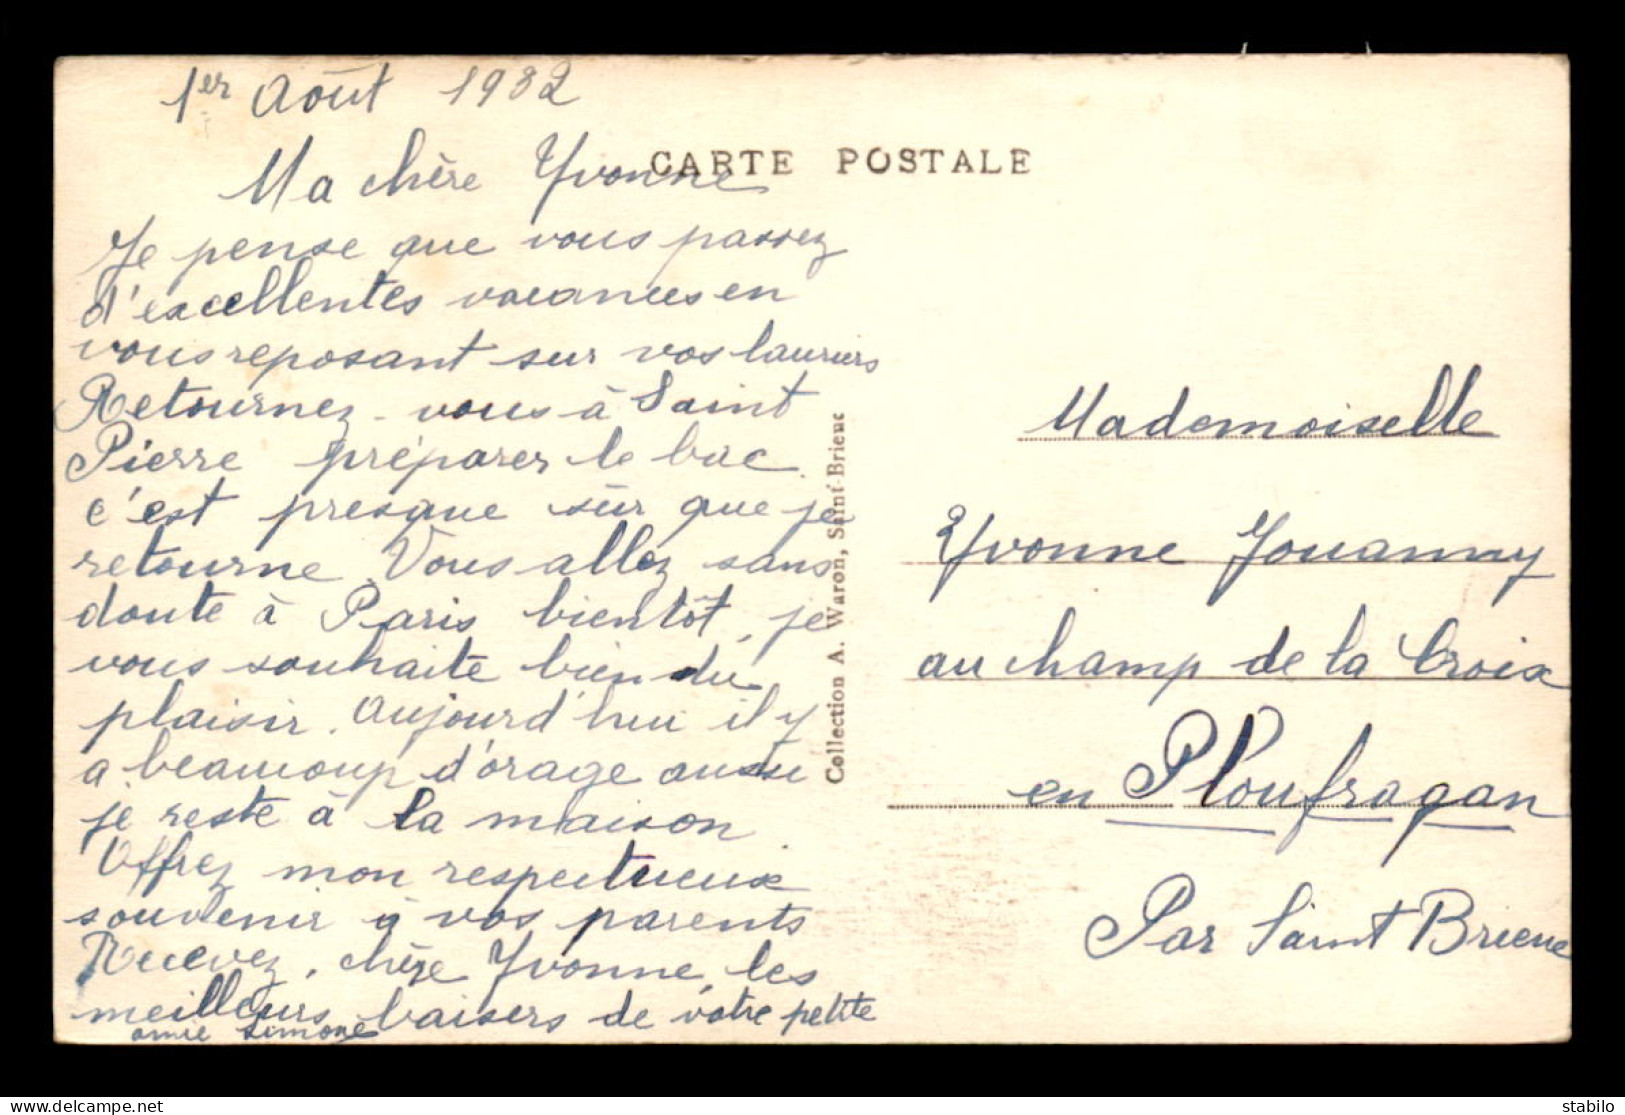 1er Août 1932
Ma chère Yvonne
CARTE POSTALE
Je pense que vous passez
d'excellentes vacances en
vous reposant sur vos lauriers
Retournez-vous à Saint
Pierre préparer le bac
c'est presque sûr que je
retourne. Vous allez sans
doute à Paris bientôt, je
vous souhaite bien du
plaisir. Aujourd'hui il y
a beaucoup d'orage aussi
je reste à la maison
Offrez mon respectueux
souvenir à vos parents
Recevez, chère Yvonne, les
meilleurs baisers de votre petite
amie Simone
Collection A. Waron, Saint-Brieuc
Mademoiselle
Yvonne Jouanny
au champ de la Croix
en Ploufragan
Par Saint Brieuc
stabilo